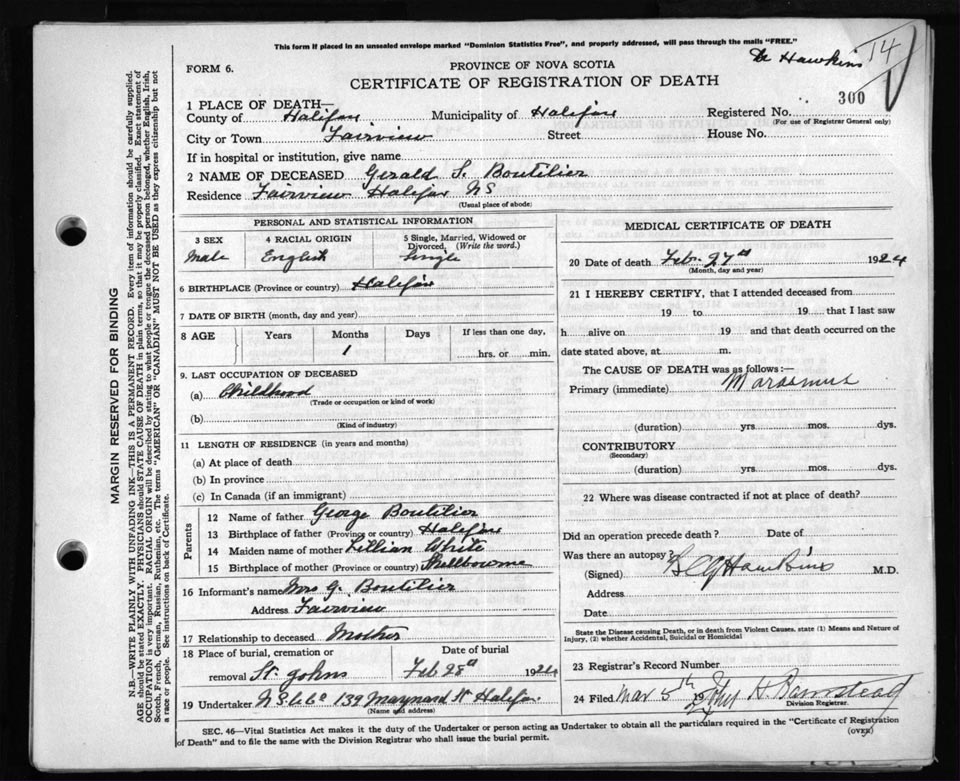 This form if placed in an unsealed envelope marked "Dominion Statistics Free", and properly addressed, will pass through the mails "FREE."
Dr Hawkins
14
FORM 6.
PROVINCE OF NOVA SCOTIA
CERTIFICATE OF REGISTRATION OF DEATH
300
1 PLACE OF DEATH—
County of Halifax Municipality of Halifax Registered No.
(For use of Registrar General only)
City or Town Fairview Street House No.
If in hospital or institution, give name
2 NAME OF DECEASED Gerald S. Boutilier
Residence Fairview Halifax NS
(Usual place of abode)
PERSONAL AND STATISTICAL INFORMATION
3 SEX 4 RACIAL ORIGIN 5 Single, Married, Widowed or Divorced, (Write the word.)
Male English Single
6 BIRTHPLACE (Province or country) Halifax
7 DATE OF BIRTH (month, day and year)
8 AGE Years Months Days If less than one day,
1 hrs. or min.
9. LAST OCCUPATION OF DECEASED
(a) Childhood
(Trade or occupation or kind of work)
(b)
(Kind of industry)
11 LENGTH OF RESIDENCE (in years and months)
(a) At place of death
(b) In province
(c) In Canada (if an immigrant)
Parents
12 Name of father George Boutilier
13 Birthplace of father (Province or country) Halifax
14 Maiden name of mother Lillian White
15 Birthplace of mother (Province or country) Shelbourne
16 Informant's name Mrs G. Boutilier
Address Fairview
17 Relationship to deceased Mother
18 Place of burial, cremation or removal St. Johns
Date of burial Feb 28th 1924
19 Undertaker 139 Maynard St Halifax
(Name and address)
MEDICAL CERTIFICATE OF DEATH
20 Date of death Feb. 27th 1924
(Month, day and year)
21 I HEREBY CERTIFY, that I attended deceased from
19 to 19 that I last saw
h alive on 19 and that death occurred on the
date stated above, at m.
The CAUSE OF DEATH was as follows:—
Primary (immediate) Marasmus
(duration) yrs mos. dys.
CONTRIBUTORY
(Secondary)
(duration) yrs mos. dys.
22 Where was disease contracted if not at place of death?
Did an operation precede death? Date of
Was there an autopsy?
(Signed) Hawkins M.D.
Address
Date
State the Disease causing Death, or in death from Violent Causes, state (1) Means and Nature of
Injury, (2) whether Accidental, Suicidal or Homicidal
23 Registrar's Record Number
24 Filed Mar 5th 19 24 John H Barnstead
Division Registrar.
SEC. 46—Vital Statistics Act makes it the duty of the Undertaker or person acting as Undertaker to obtain all the particulars required in the "Certificate of Registration
of Death" and to file the same with the Division Registrar who shall issue the burial permit.
(OVER)
MARGIN RESERVED FOR BINDING
N.B.—WRITE PLAINLY WITH UNFADING INK—THIS IS A PERMANENT RECORD. Every item of information should be carefully supplied.
AGE should be stated EXACTLY. PHYSICIANS should STATE CAUSE OF DEATH in plain terms, so that it may be properly classified. Exact statement of
OCCUPATION is very important. RACIAL ORIGIN will be described by stating to what people or tongue the deceased person belonged, whether English, Irish,
Scotch, French, German, Russian, Ruthenian, etc. The terms "AMERICAN" OR "CANADIAN" MUST NOT BE USED as they express citizenship but not
a race or people. See instructions on back of Certificate.